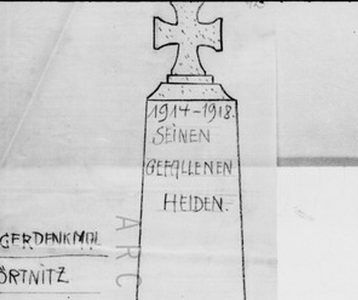 1914-1918.
SEINEN
GEFALLENEN
HELDEN.
GERDENKMAL
ÖRTNITZ
ARC